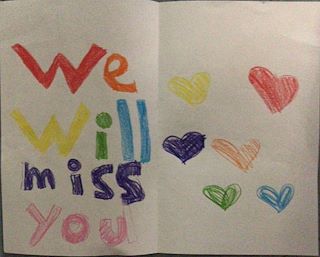 We
Will
miss
you